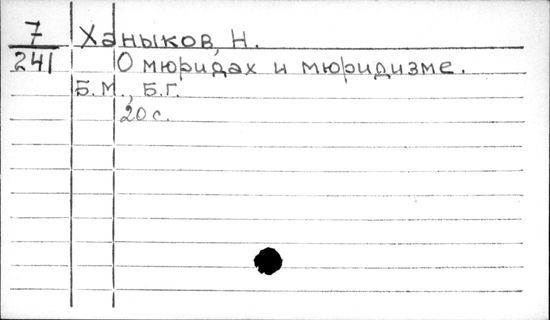 7 Ханыков, Н.
241 О мюридах и мюридизме.
Б.М., Б.Г.
20 с.